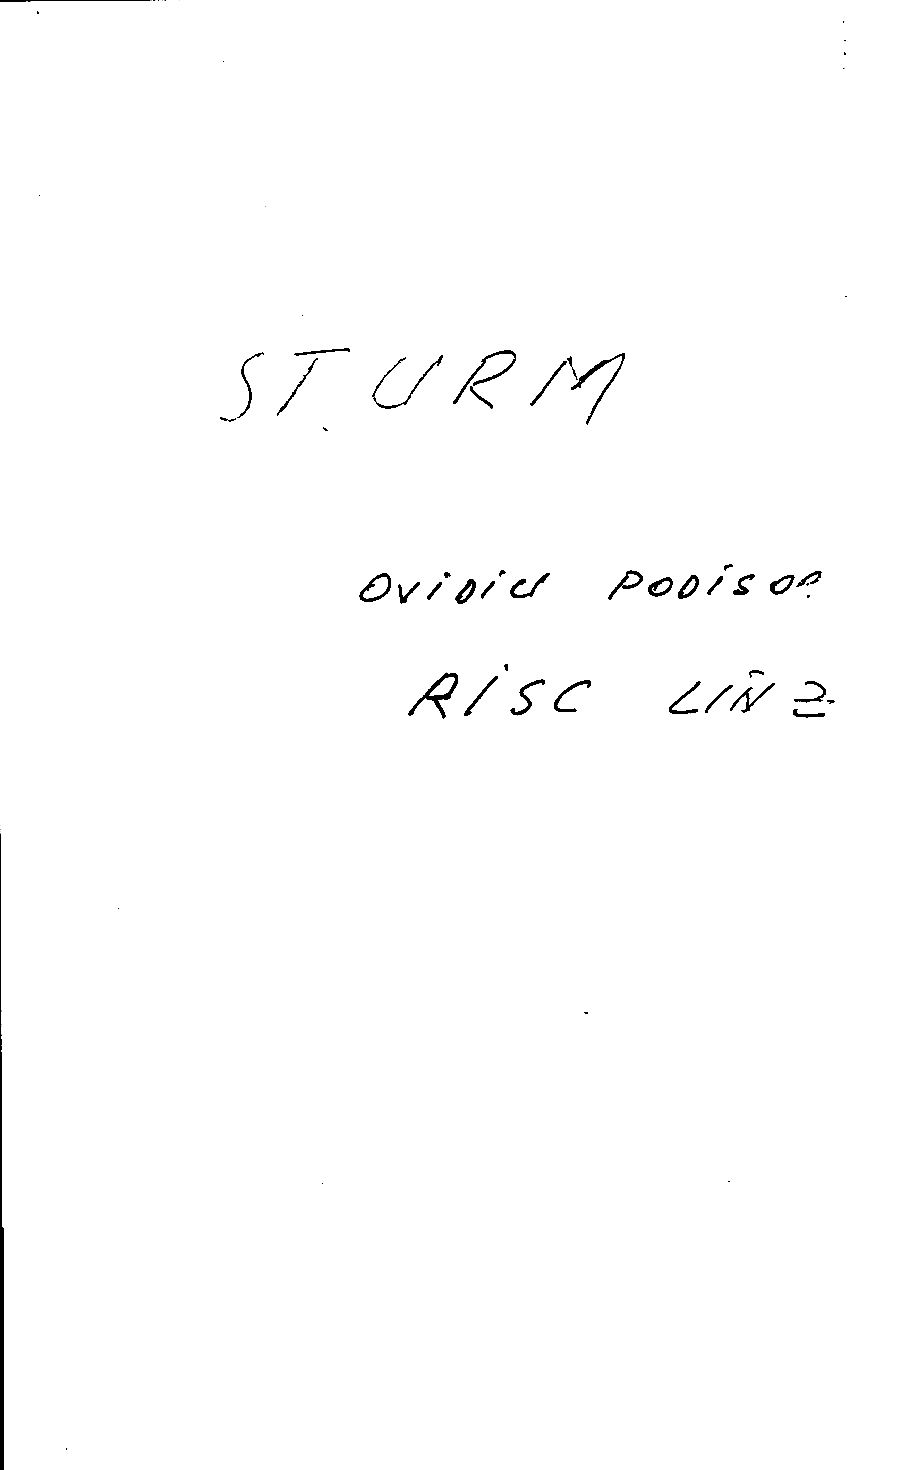 STURM
Ovidiu Podisor
RISC LINZ